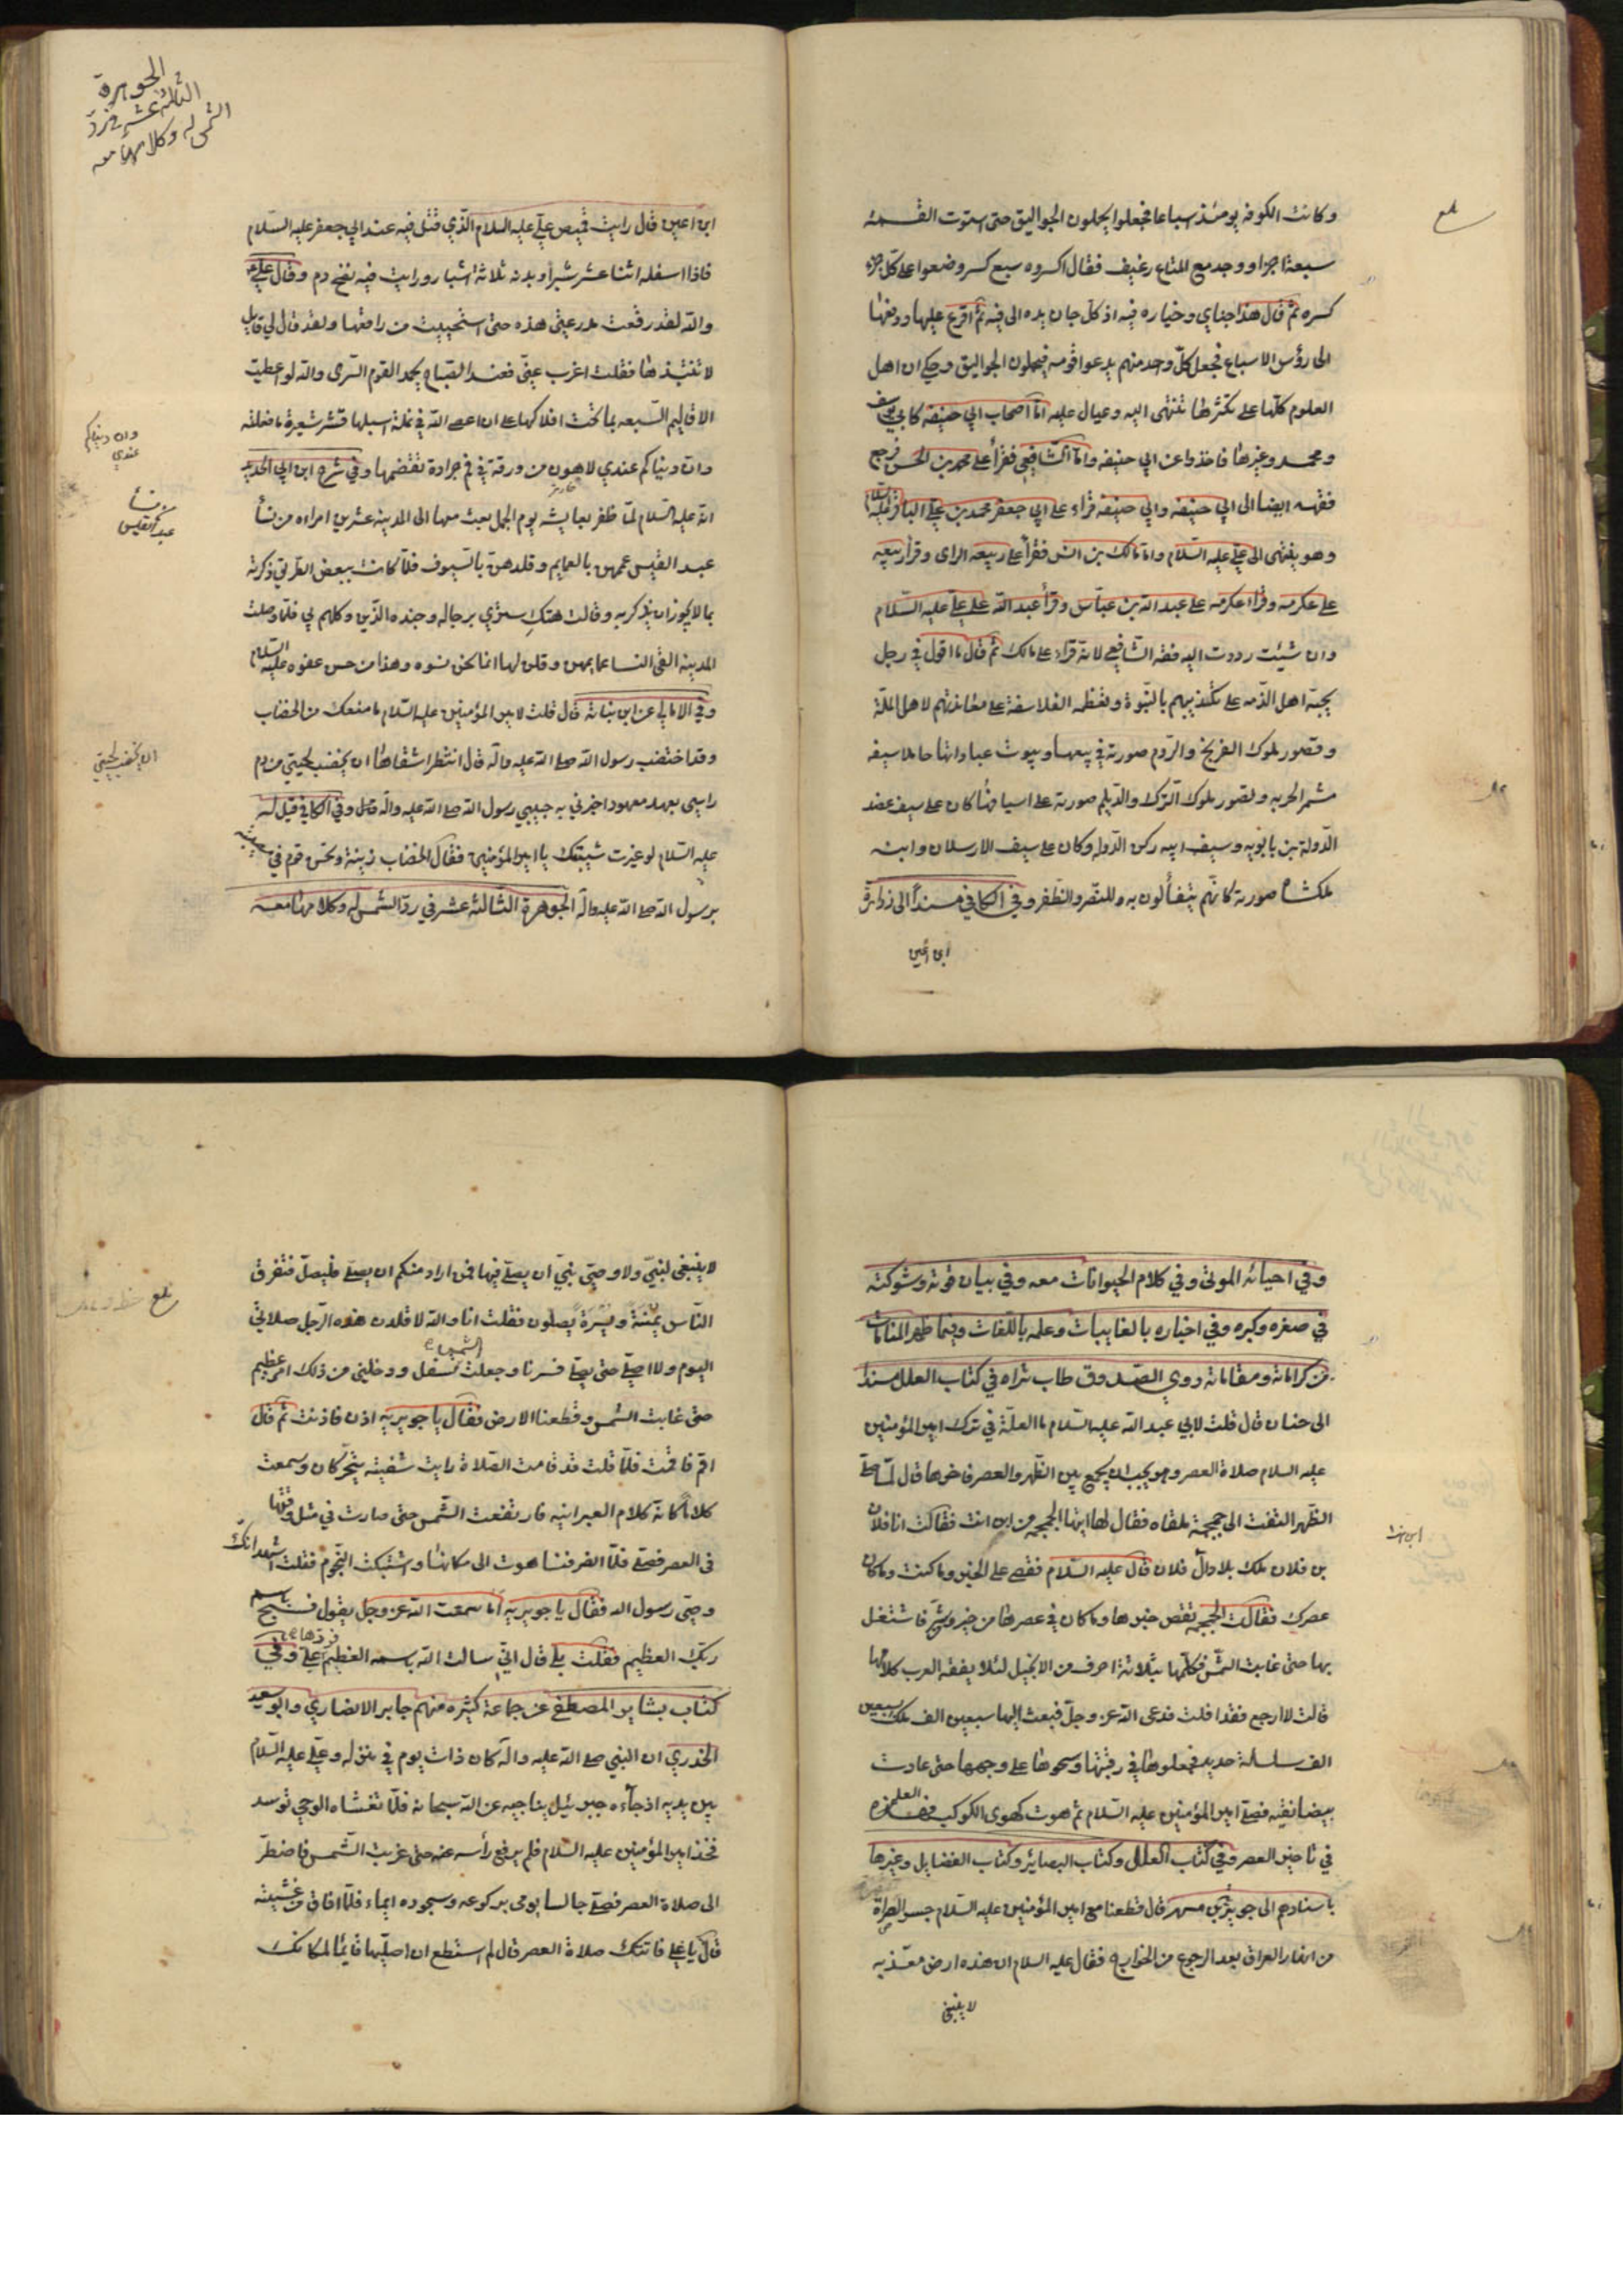 وكانت الكوفه يومئذ سباعا فجعلوا يحملون الجواليق حتى استوت القسمه
سبعة اجزا ووجد مع المتاع رغيف فقال اكسروه سبع كسر وضعوا على كل جزء
كسره ثم قال هذا جناي وخياره فيه اذ كل جان يده الى فيه ثم اقرع عليها ودفعها
الى رؤس الاسباع فجعل كل واحد منهم يدعوا قومه فيحملون الجواليق وحكى ان اهل
العلوم كلها على تكثرها تنتهى اليه وعيال عليه اما اصحاب ابي حنيفه كابي يوسف
ومحمد وغيرها فاخذوا عن ابي حنيفه واما الشافعي فقرأ على محمد بن الحسن فرجع
فقهه ايضا الى ابي حنيفه وابي حنيفه قراء على ابي جعفر محمد بن علي الباقر عليه السلام
وهو ينتهى الى علي عليه السلام واما مالك بن انس فقرأ على ربيعه الراى وقرأ ربيعه
على عكرمه وقرأ عكرمه على عبد الله بن عباس وقرأ عبد الله على علي عليه السلام
وان شئت رددت اليه فقه الشافعي لانه قراء على مالك ثم قال ما اقول في رجل
يحبه اهل الذمه على تكذيبهم بالنبوة وتعظمه الفلاسفة على معاندتهم لاهل الملة
وتصور ملوك الفرنج والروم صورته في بيعها وبيوت عباداتها حاملا سيفه
مشمر الحربه وتصور ملوك الترك والديلم صورته على اسيافها كان على سيف عضد
الدولة بن بابويه وسيف ابيه ركن الدوله وكان على سيف الارسلان وابنه
ملكشاه صورته كانهم يتفألون به وللنصر والظفر وفي الكافي مسندا الى زرارة
ابن اعين
الجوهرة
الثالثة عشر في رد
الشمس له وكلامها معه
ابن اعين قال رايت قميص علي عليه السلام الذي قتل فيه عند ابي جعفر عليه السلام
فاذا اسفله اثنا عشر شبرا وبدنه ثلاثة اشبار ورايت فيه نضح دم وقال علي
والله لقد رقعت مدرعتى هذه حتى استحييت من راقعها ولقد قال لي قايل
لا تنبذها فقلت اغرب عنى فعند الصباح يحمد القوم السرى والله لو اعطيت
الاقاليم السبعه بما تحت افلاكها على ان اعصى الله في نملة اسلبها قشر شعيرة ما فعلته
وان دنياكم عندي لاهون من ورقة في فم جرادة تقضمها وفي شرح ابن ابي الحديد
انه عليه السلام لما ظفر بعايشه يوم الجمل بعث معها الى المدينه عشرين امراه من نسأ
عبد القيس عممهن بالعمايم وقلدهن بالسيوف فلما كانت ببعض الطريق ذكرته
بما لا يجوز ان يذكر به وقالت هتك ستري برجاله وجنده الذين وكلهم بي فلما وصلت
المدينه القى النسا عمايمهن وقلن لها انما نحن نسوه وهذا من حسن عفوه عليه السلام
وفي الامالي عن ابن نباته قال قلت لامير المؤمنين عليه السلام ما منعك من الخضاب
وقد اختضب رسول الله صلى الله عليه واله قال انتظر اشقاها ان يخضب لحيتي من دم
راسي بعهد معهود اخبرني به حبيبي رسول الله صلى الله عليه واله وفي الكافي قيل له
عليه السلام لو غيرت شيبتك يا امير المؤمنين فقال الخضاب زينة ونحن قوم في مصيبه
برسول الله صلى الله عليه واله الجوهرة الثالثة عشر في رد الشمس له وكلامها معه
وان دنياكم
عندي
نسأ
عبد القيس
ان يخضب لحيتي
وفي احيائه الموتى وفي كلام الحيوانات معه وفي بيان قوته وشوكته
في صغره وكبره وفي اخباره بالغايبات وعلمه باللغات وفيما ظهر للناس
من كراماته ومقاماته روى الصدوق طاب ثراه في كتاب العلل مسندا
الى حنان قال قلت لابي عبد الله عليه السلام ما العلة في ترك امير المؤمنين
عليه السلام صلاة العصر وهو يحب ان يجمع بين الظهر والعصر فاخرها قال لما صلى
الظهر التفت الى جمجمة ملقاه فقال لها ايتها الجمجمه من اين انت فقالت انا فلان
بن فلان ملك بلاد ال فلان قال عليه السلام فقصي على الخبر وما كنت وما كان
عصرك فقالت الجمجمه تقص خبرها وما كان في عصرها من خير وشر فاشتغل
بها حتى غابت الشمس فكلمها بثلاثة احرف من الانجيل لئلا يفقه العرب كلامها
قالت لا ارجع فقد افلت فدعى الله عز وجل فبعث اليها سبعين الف ملك بسبعين
الف سلسلة حديد فجعلوها في رقبتها وسحبوها على وجهها حتى عادت
بيضا نقيه فصلى امير المؤمنين عليه السلام ثم هوت كهوى الكوكب فهذه العلة
في تاخير العصر وفي كتاب العلل وكتاب البصاير وكتاب الفضايل وغيرها
باسنادهم الى جويرية بن مسهر قال قطعنا مع امير المؤمنين عليه السلام جسر الصراة
من انهار العراق بعد الرجوع من الخوارج فقال عليه السلام ان هذه ارض معذبه
لا ينبغى
لا ينبغى لنبي ولا وصي نبي ان يصلي فيها فمن اراد منكم ان يصلي فليصل فتفرق
الناس يمنة ويسرة يصلون فقلت انا والله لاقلدن هذه الرجل صلاتي
اليوم ولا اصلي حتى يصلي فسرنا وجعلت الشمس تستفل ودخلني من ذلك امر عظيم
حتى غابت الشمس وقطعنا الارض فقال يا جويريه اذن فاذنت ثم قال
اقم فاقمت فلما قلت قد قامت الصلاة رايت شفتيه يتحركان وسمعت
كلاما كانه كلام العبرانيه فارتفعت الشمس حتى صارت في مثل وقتها
في العصر فصلى فلما انصرفنا هوت الى مكانها واشتبكت النجوم فقلت اشهد انك
وصي رسول الله فقال يا جويريه اما سمعت الله عز وجل يقول فسبح باسم
ربك العظيم فقلت بلى قال اني سالت الله باسمه العظيم فردها علي وفي
كتاب بشاير المصطفى عن جماعة كثيره منهم جابر الانصاري وابو سعيد
الخدري ان النبي صلى الله عليه واله كان ذات يوم في منزله وعلي عليه السلام
بين يديه اذ جاءه جبرئيل يناجيه عن الله سبحانه فلما تغشاه الوحي توسد
فخذ امير المؤمنين عليه السلام فلم يرفع رأسه عنه حتى غربت الشمس فاضطر
الى صلاة العصر فصلى جالسا يومى بركوعه وسجوده ايماء فلما افاق من غشيته
قال يا علي فاتتك صلاة العصر قال لم استطع ان اصليها قايما لمكانك